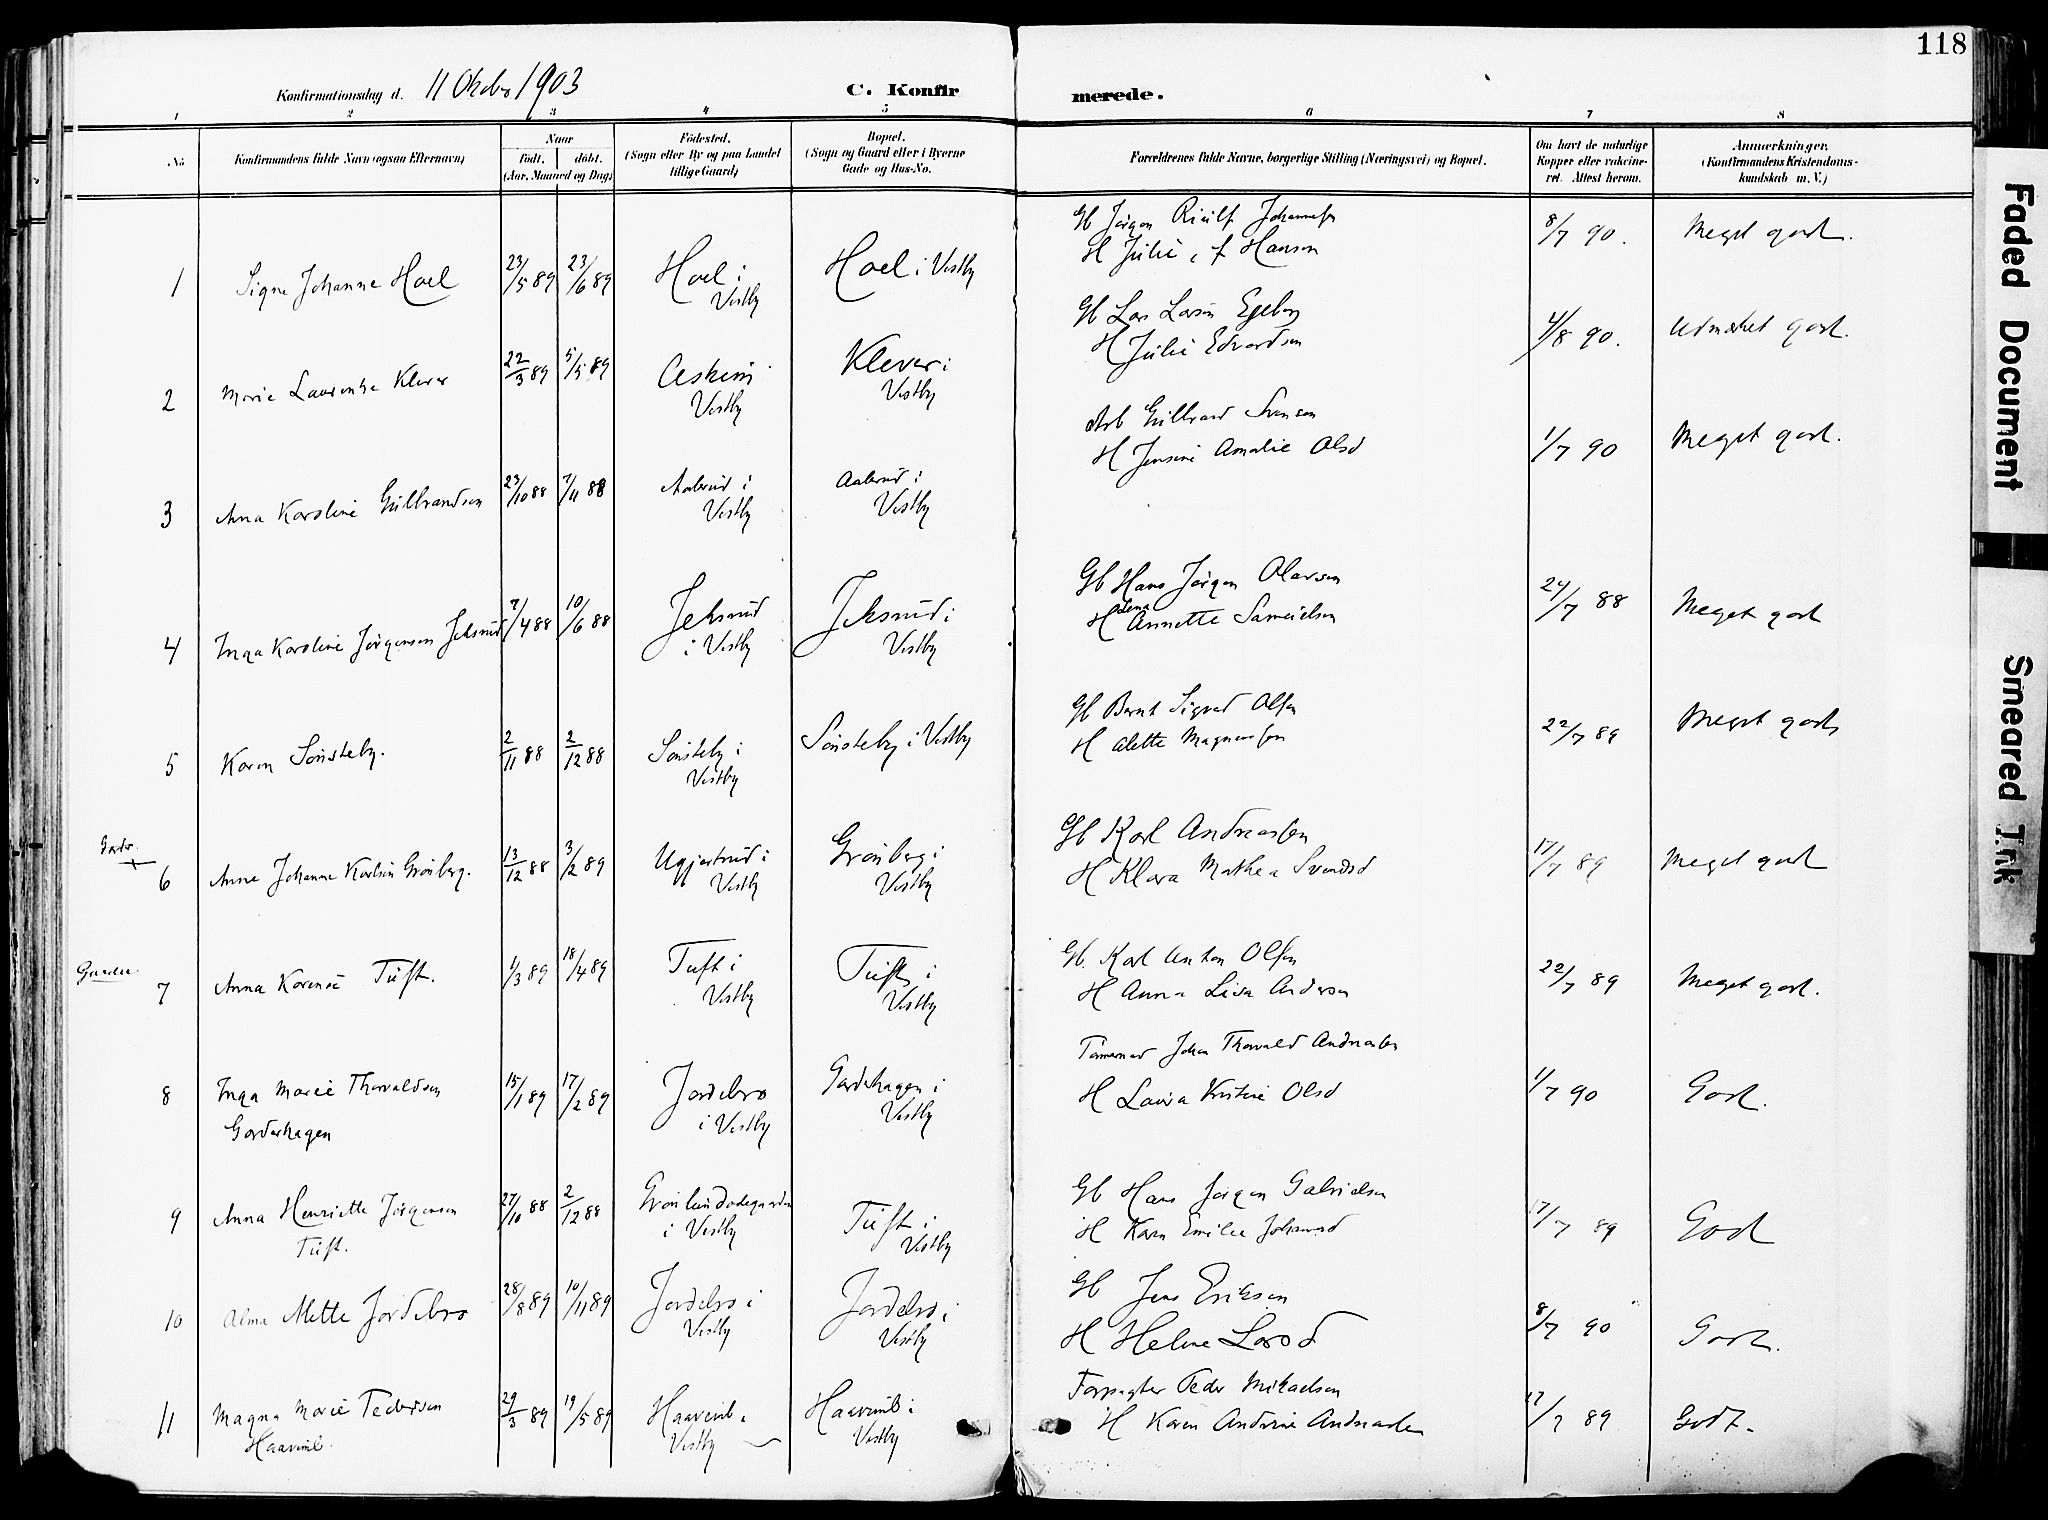 118
Konfirmationsdag d. 11 Oktober 1903
C. Konfirmerede.
1 2 3 4 5 6 7 8
No
Konfirmandens fulde Navn (ogsaa Efternavn)
Naar
født. døbt.
(Aar, Maaned og Dag)
Födested.
(Sogn eller By og paa Landet
tillige Gaard)
Bopæl.
(Sogn og Gaard eller i Byerne
Gade og Hus-No.
Forældrenes fulde Navne, borgerlige Stilling (Næringsvei) og Bopæl.
Om havt de naturlige
Kopper eller vakcine-
ret. Attest herom.
Anmerkninger.
(Konfirmandens Kristendoms-
kundskab m. V.)
1 Signe Johanne Hoel 23/5 89 23/6 89 Hoel i Vestby Hoel i Vestby
Gb Jørgen Johannesen
H Julie f Hansen
8/7 90. Meget godt.
2 Marie Laurentse Klever 22/3 89 5/5 89 Askeim Vestby Klever i Vestby
Gb Lars Larsen Egeberg
H Julie Edvardsen
4/8 90. Udmærket godt.
3 Anna Karoline Gulbrandsen 23/10 88 7/11 88 Aalerud i Vestby Aalerud i Vestby
Arb Gulbrand Svensen
H Jensine Amalie Olsd
1/7 90 Meget godt.
4 Inga Karoline Jørgensen Jeksrud 7/4 88 10/6 88 Jeksrud i Vestby Jeksrud i Vestby
Gb Hans Jørgen Olavsen
H Lena Annette Samuelsen
24/7 88 Meget godt
5 Karen Sønsteby. 2/11 88 2/12 88 Sønsteby i Vestby Sønsteby i Vestby
Gb Bernt Sigvard Olsen
H Alette Magnussen
22/7 89 Meget godt
Garder.
6 Anna Johanne Karlsen Grønberg. 13/12 88 3/2 89 Uggjertrud i Vestby Grønberg i Vestby
Gb Karl Andreassen
H Klara Mathea Svendsd
17/7 89 Meget godt
Garder.
7 Anna Karense Tuft. 1/3 89 18/4 89 Tuft i Vestby Tuft i Vestby
Gb. Karl Anton Olsen
H Anna Lisa Andersen
22/7 89 Meget godt.
8 Inga Marie Thorvaldsen
Garderhagen
15/1 89 17/2 89 Jordebro i Vestby Garderhagen i Vestby
Tømmermd Johan Thorvald Andreassen
H Laura Kristine Olsd
1/7 90 Godt.
9 Anna Henriette Jørgensen
Tuft.
27/10 88 2/12 88 Grønlundødegaarden i Vestby Tuft i Vestby
Gb Hans Jørgen Gabrielsen
H Karen Emilie Johansd
17/7 89 God
10 Alma Mette Jordebro 28/8 89 10/11 89 Jordebro i Vestby Jordebro i Vestby
Gb Jens Eriksen
H Helene Larsd
8/7 90 Godt.
11 Magna Marie Pedersen
Haavimb.
29/3 89 19/5 89 Haavimb i Vestby Haavimb i Vestby
Forpagter Peder Mikaelsen
H Karen Andrine Andreassen
17/7 89 Godt.
Faded Document
Smeared Ink